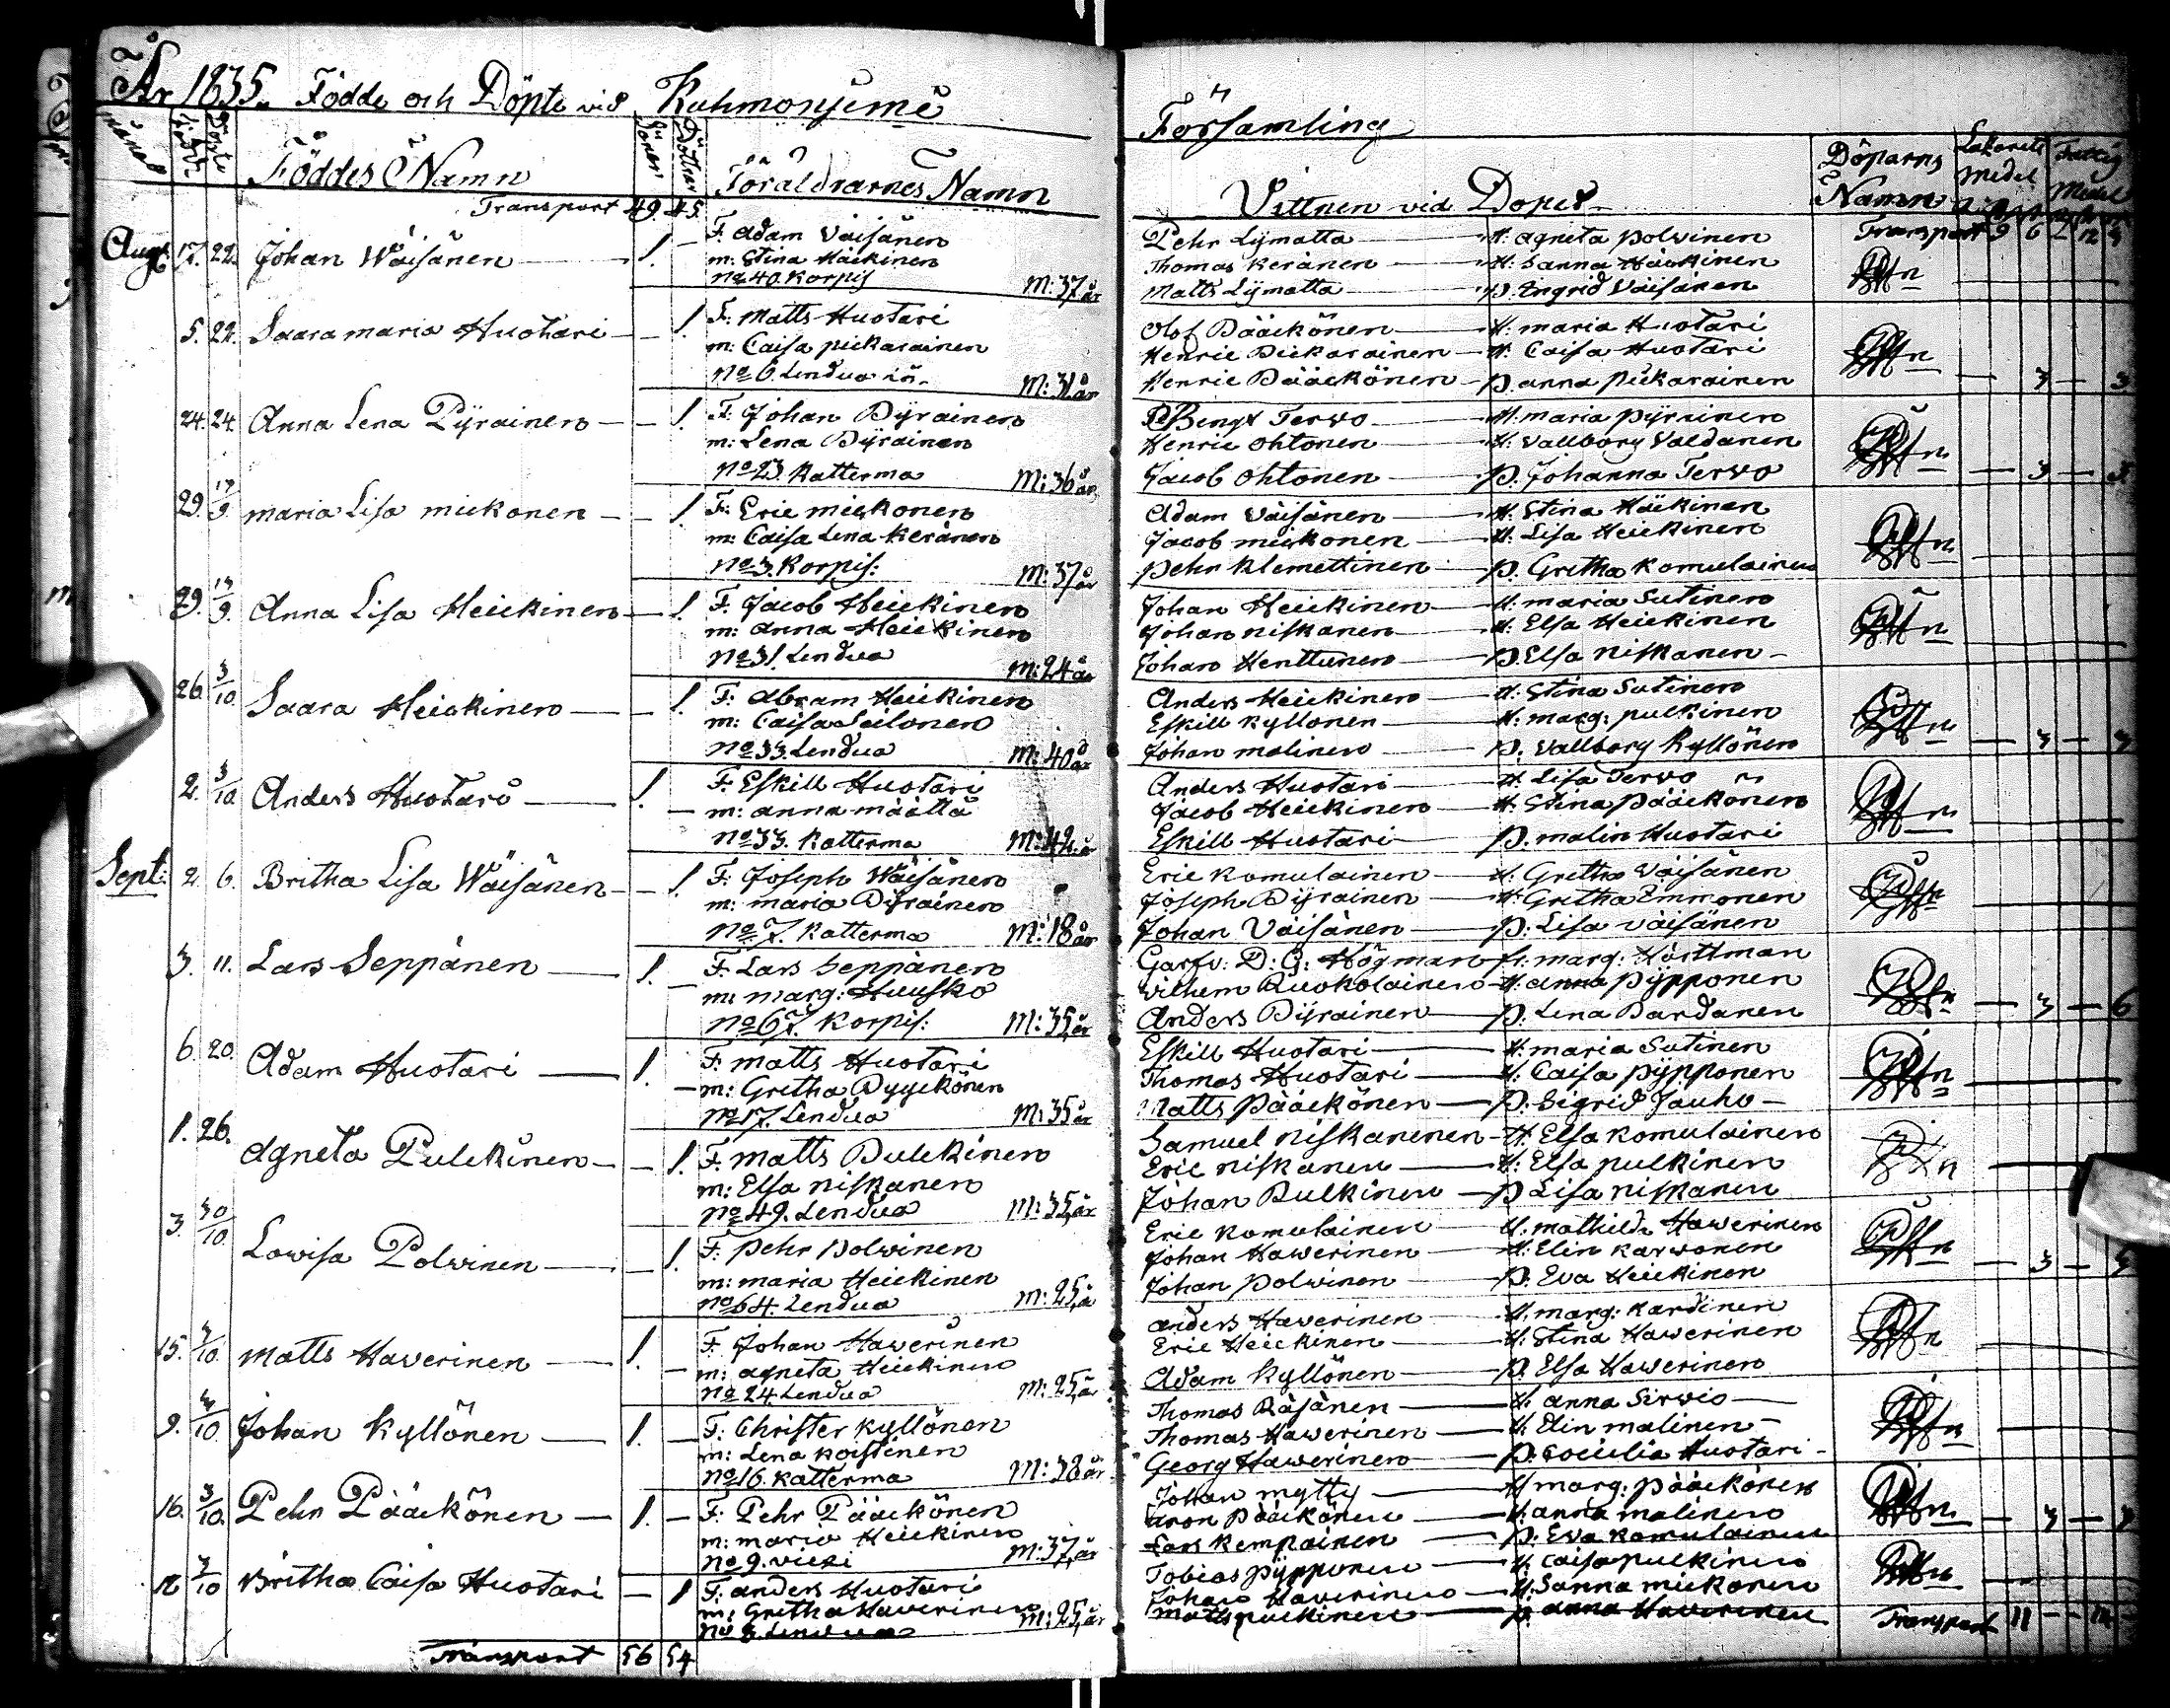 År 1835. Födde och Döpte vid Kuhmoniemi
Församling
Månad
Födde
Döpte
Föddes Namn
Söner
Döttrar
Föräldrarnes Namn
Vittnen vid Dopet
Döparns Namn
Lazaretts Medel
Fattig Medel
Transport 49. 45.
Transport 9 6
Augt 17. 22. Johan Wäisänen 1. F. Adam Väisänen
m: Stina Häikinen
No 40. Korpis M: 37 år
Pehr Lymatta H. Agneta Polvinen
Thomas Keränen H: Sanna Häikinen
Matts Lymatta p. Ingrid Väisänen
5. 22. Saara Maria Huotari 1. F: Matts Huotari
m: Caisa Piekarainen
No 6. Lendua M: 31 år
Olof Pääckönen H: Maria Huotari
Henric Piekarainen H. Caisa Huotari
Henric Pääckönen p. Anna Piekarainen 3 3
24. 24. Anna Lena Pyrainen 1. F. Johan Pyrainen
m: Lena Pyrainen
No 23. Katterma M: 36 år
Bengt Tervo H: Maria Pyrainen
Henric Ohtonen H. Vallborg Valdanen
Jacob Ohtonen p. Johanna Tervo 3
29. 13/9. Maria Lisa Mickonen 1. F: Eric Mickonen
m: Caisa Lena Keränen
No 3. Korpis: M: 37 år
Adam Väisänen H. Stina Häikinen
Jacob Mickonen H. Lisa Heickinen
Pehr Klemettinen p. Gretha Komulainen
29. 13/9. Anna Lisa Heickinen 1. F. Jacob Heickinen
m: Anna Heickinen
No 31. Lendua M: 24 år
Johan Heickinen H. Maria Sutinen
Johan Niskanen H. Elsa Heickinen
Johan Henttunen p. Elsa Niskanen
26. 3/10. Saara Heickinen 1. F: Abram Heickinen
m: Caisa Seilonen
No 33. Lendua M: 40 år
Anders Heickinen H: Stina Sutinen
Eskill Kyllönen H. Marg: Pulkinen
Johan Malinen p. Vallborg Kyllönen 3 3
2. 3/10. Anders Huotari 1. F. Eskill Huotari
m: Anna Määttä
No 33. Katterma M: 42 år
Anders Huotari H. Lisa Tervo
Jacob Heickinen H. Stina Pääckönen
Eskill Huotari p. Malin Huotari
Sept: 2. 6. Britha Lisa Wäisänen 1. F: Joseph Wäisänen
m: Maria Pyrainen
No 7. Katterma M: 18 år
Eric Komulainen H. Gretha Väisänen
Joseph Pyrainen H: Gretha Emmonen
Johan Väisänen p. Lisa Väisänen
3. 11. Lars Seppänen 1. F. Lars Seppänen
m: Marg: Huusko
No 67. Korpis: M: 35, år
Garfv: D: G: Högman fr: Marg: Hörttman
Vilhem Ruokolainen H: Anna Pypponen
Anders Pyrainen p. Lena Pardanen 3 6
6. 20. Adam Huotari 1. F. Matts Huotari
m: Gretha Pyyckönen
No 17. Lendua M: 35 år
Eskill Huotari H. Maria Sutinen
Thomas Huotari H. Caisa Pypponen
Matts Pääckönen p. Sigrid Jauho
1. 26. Agneta Pulckinen 1. F. Matts Pulckinen
m: Elsa Niskanen
No 49. Lendua M: 35, år
Samuel Niskanenen H. Elsa Komulainen
Eric Niskanen H: Elsa Pulkinen
Johan Pulkinen p Lisa Niskanen
3. 30/10. Lovisa Polvinen 1. F. Pehr Polvinen
m: Maria Heickinen
No 64. Lendua M: 25, å
Eric Komulainen H. Mathilda Haverinen
Johan Haverinen H: Elin Karvonen
Johan Polvinen p. Eva Heickinen 3
15. 4/10. Matts Haverinen 1. F. Johan Haverinen
m: Agneta Heickinen
No 24. Lendua M: 25, år
Anders Haverinen H. Marg: Kardinen
Eric Heickinen H: Stina Haverinen
Adam Kyllönen p. Elsa Haverinen
9. 4/10. Johan Kyllönen 1. F: Christer Kyllönen
m: Lena Koistinen
No 16. Katterma M: 38 år
Thomas Räsänen H. Anna Sirvio
Thomas Haverinen H. Elin Malinen
Georg Haverinen p. Coecilia Huotari
16. 3/10. Pehr Pääckönen 1. F: Pehr Pääckönen
m: Maria Heickinen
No 9. Viexi M: 37, år
Johan Mytty H Marg: Pääckönen
Aron Pääckönen H. Anna Malinen
Lars Kempainen p. Eva Komulainen 3
3/10 Britha Caisa Huotari 1 F. Anders Huotari
m: Gretha Haverinen M: 25, år
No 8. Lendua
Tobias Pypponen H. Caisa Pulkinen
Johan Haverinen H. Sanna Mickonen
Matts Pulckinen p. Anna Haverinen
Transport 56 54
Transport 11